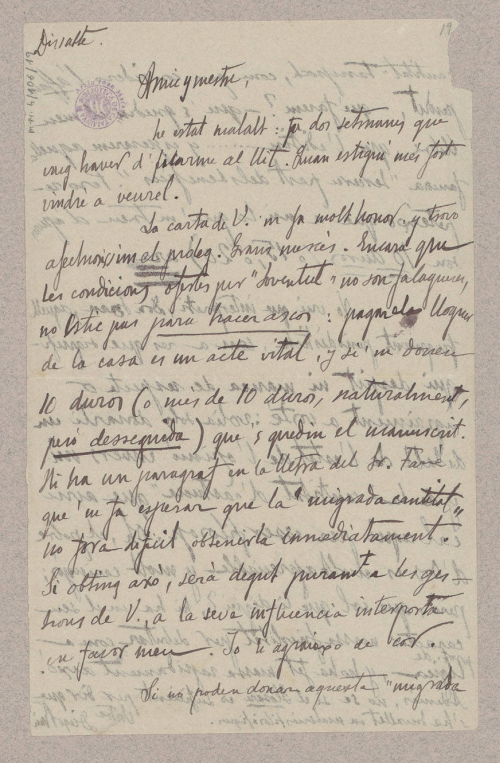 Dissabte.
19
Amic y mestre,
he estat malalt: fa dos setmanes que
vaig haver d' ficarme al llit. Quan estigui més fort
vindre a veurel.
La carta de V. 'm fa molt honor, y trovo
afectuosissim el proleg. Grans mercès. Encara que
les condicions ofertes per "Joventut" no son falagueres,
no estic pas para hacer ascos: pagar el lloguer
de la casa es un acte vital, y si 'm donen
10 duros (o mes de 10 duros, naturalment,
però desseguida) que 's quedin el manuscrit.
Hi ha un paragraf en la lletra del Sr.
que 'm fa esperar que la "migrada cantitat"
no fora dificil obtenirla inmediatament.
Si obting axó, será degut purament a les ges-
tions de V., a la seva influencia interposta
en favor meu. Jo li agraixo de cor.
Si no poden donar aquesta "migrada